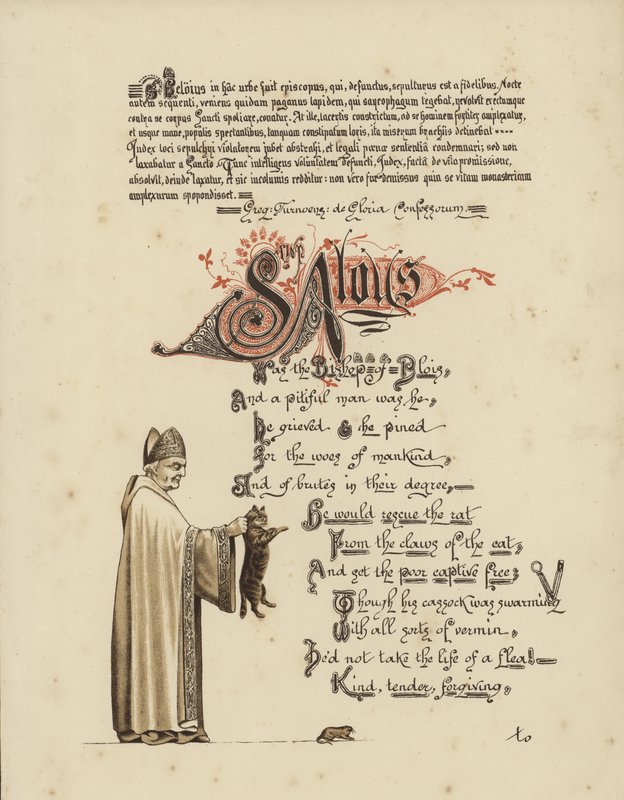 S. Heloïus in hac urbe fuit episcopus, qui, defunctus, sepulturus est a fidelibus. Nocte
autem sequenti, veniens quidam paganus lapidem, qui sarcophagum tegebat, revolvit erectumque
contra se corpus Sancti spoliare, conatur. At ille, lacertis constrictum, ad se hominem fortiter amplexatur,
et usque mane, populis spectantibus, tanquam constipatum loris, ita miserum brachiis detinebat
Judex loci sepulchri violatorem jubet abstrahi, et legali pœnæ sententia condemnari; sed non
laxabatur a Sancto. Tunc intelligens voluntatem defuncti, Judex, facta de vita promissione,
absolvit, deinde laxatur, et sic incolumis redditur: non vero fur demissus quin se vitam monastericam
amplexurum spopondisset.
Greg: Turnoens: de Gloria Confessorum.
S Aloys
Was the Bishop of Blois,
And a pitiful man was he,
He grieved & he pined
For the woes of mankind,
And of brutes in their degree,—
He would rescue the rat
From the claws of the cat,
And set the poor captive free;
Though his cassock was swarming
With all sorts of vermin,
He'd not take the life of a flea!—
Kind, tender, forgiving,
to